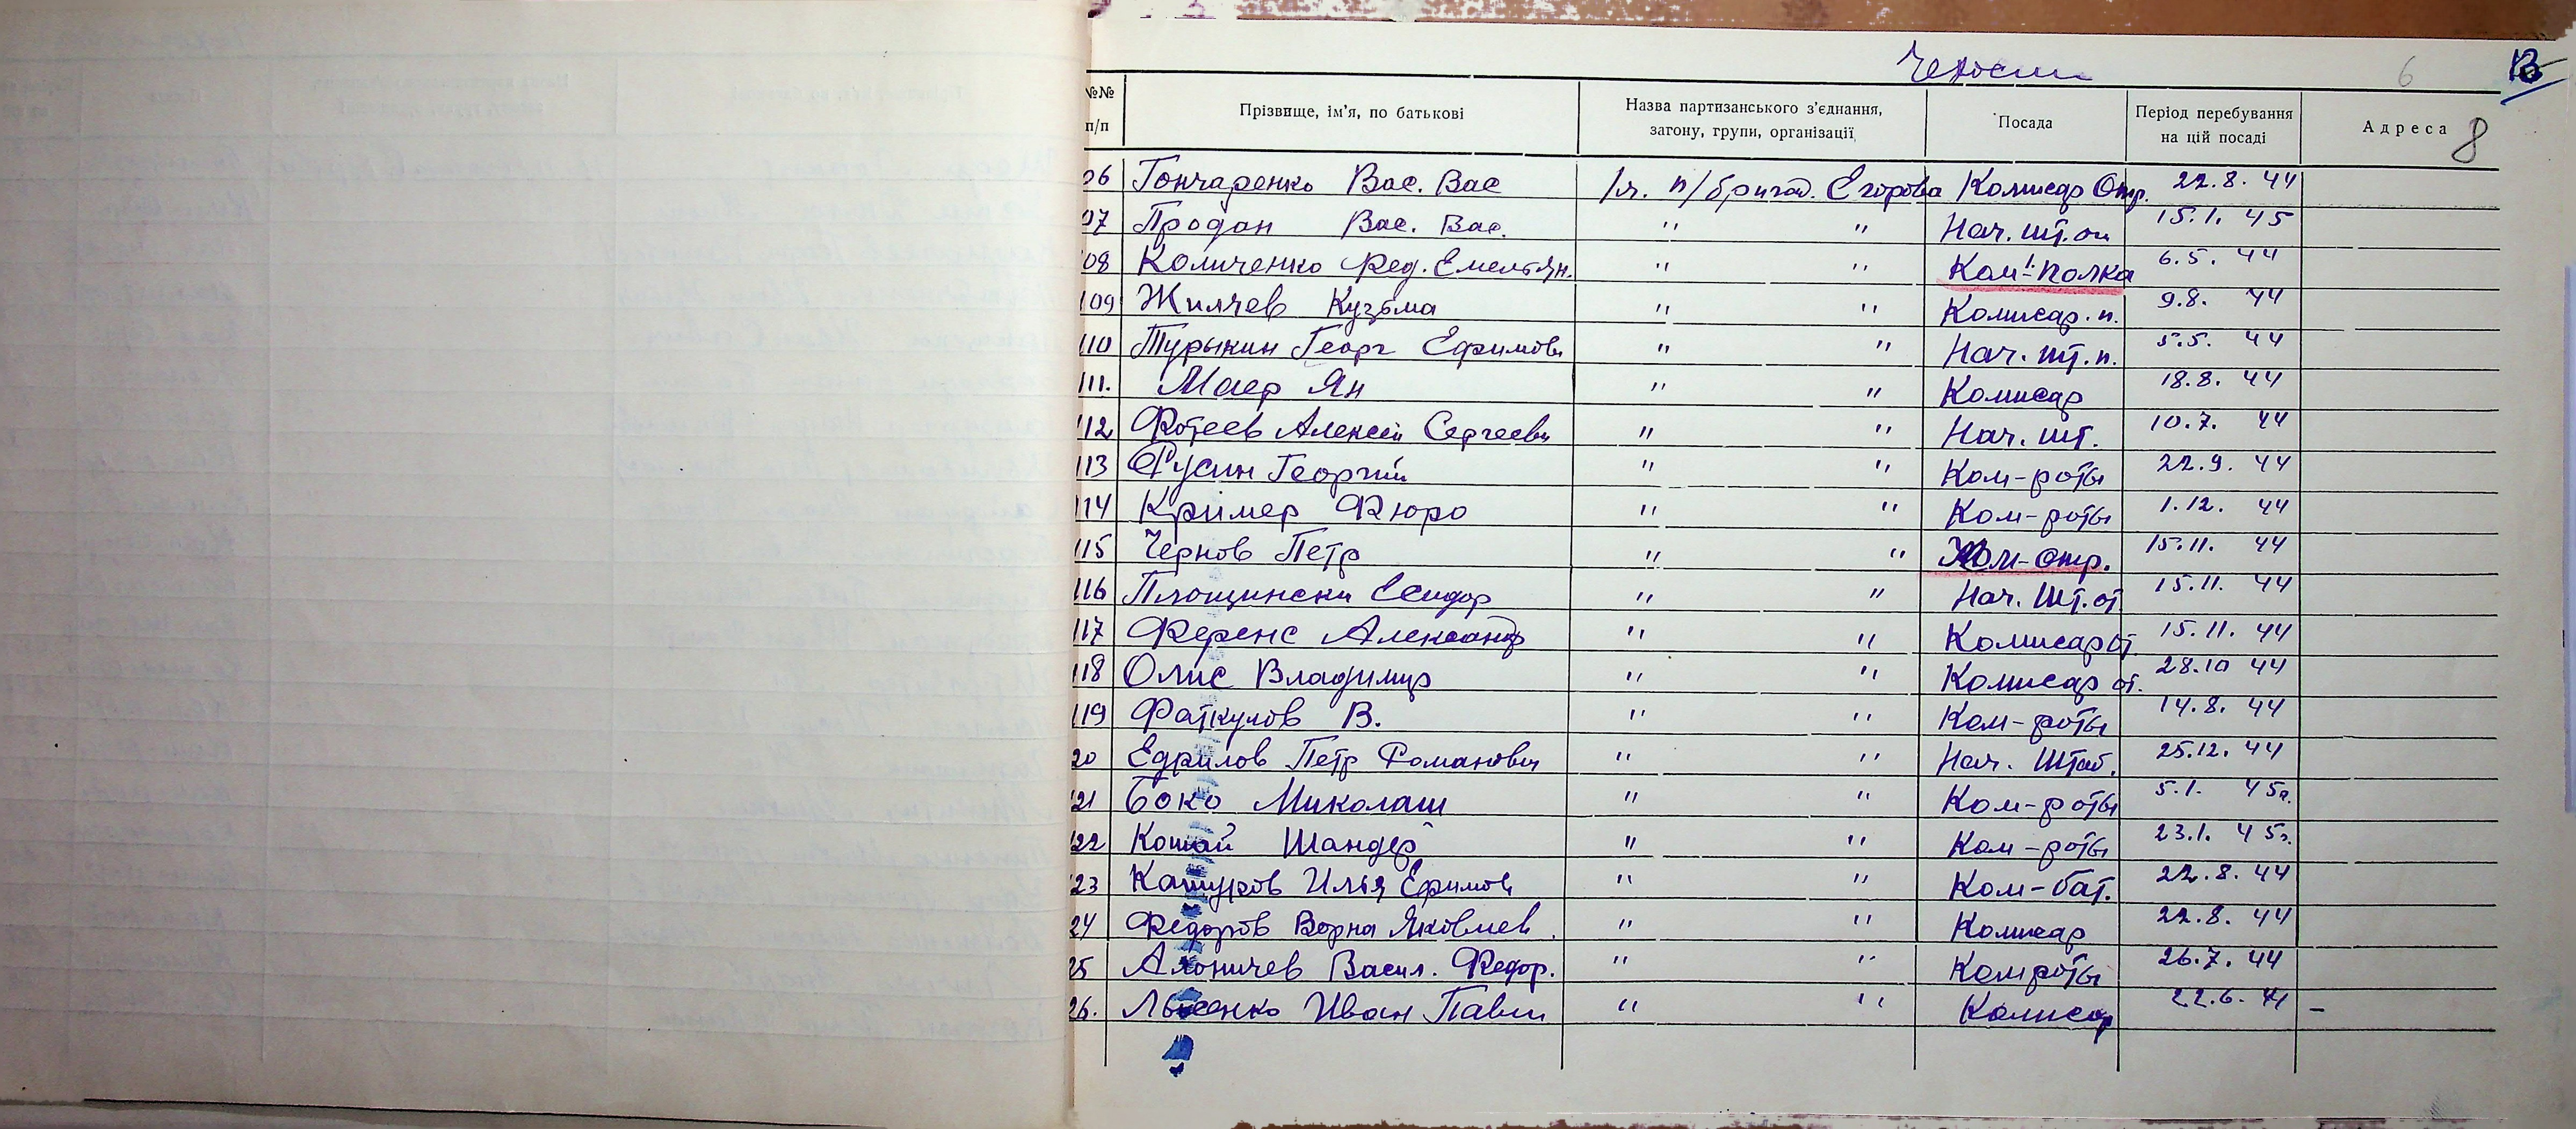 6 13
№№ п/п Прізвище, ім'я, по батькові Назва партизанського з'єднання, загону, групи, організації Посада Період перебування на цій посаді Адреса 8
06 Гончаренко Вас. Вас 1ч. п/бригад. Егорова Комисар Отр. 22.8.44
07 Продан Вас. Вас. " " Нач. шт. от 15.1.45
108 Количенко Фед. Емельян. " " Ком. полка 6.5.44
109 Жиляев Кузьма " " Комисар. п. 9.8.44
110 Турыкин Георг Ефимови " " Нач. шт. п. 5.5.44
111. Маер Ян " " Комисар 18.8.44
112 Фотеев Алексей Сергееви " " Нач. шт. 10.7.44
113 Русин Георгий " " Ком-роты 22.9.44
114 Кример Фюро " " Ком-роты 1.12.44
115 Чернов Петр " " Ком-отр. 15.11.44
116 Площински Сидор " " Нач. шт. от 15.11.44
117 Ференс Александр " " Комисар от 15.11.44
118 Олис Владимир " " Комисар от. 28.10 44
119 Фаткулов В. " " Ком-роты 14.8.44
20 Едрилов Петр Романови " " Нач. Штаб. 25.12.44
21 Боко Миколаш " " Ком-роты 5.1. 45г.
22 Кошай Шандер " " Ком-роты 23.1.45г.
23 Кашуров Илья Ефимов " " Ком-бат. 22.8.44
24 Федоров Яковлев " " Комисар 22.8.44
25 Васил. Федор. " " Ком роты 26.7.44
26. Лысенко Иван Павл " " Комисар 22.6.44 –